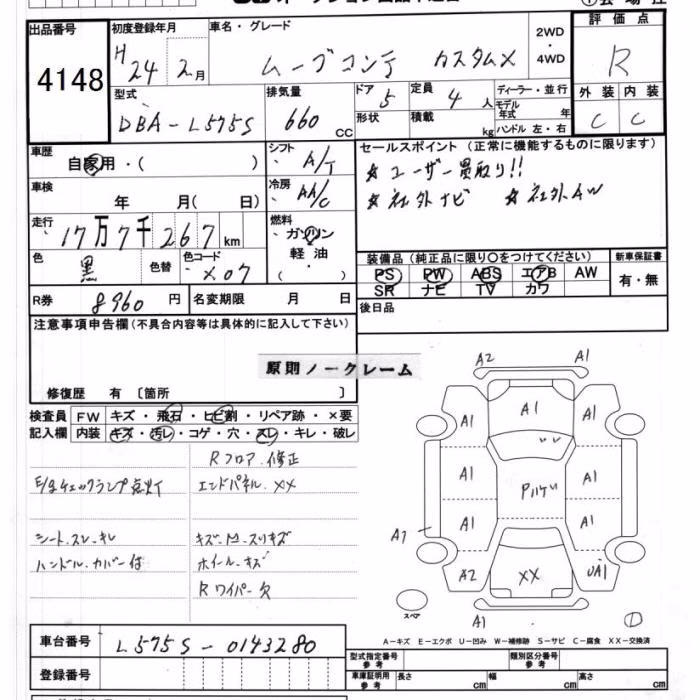 出品番号
4148
初度登録年月
H 24 年 2 月
車名・グレード
ムーブコンテ カスタムX
2WD
・
4WD
評価点
R
外装 内装
C C
型式
DBA-L575S
排気量
660 CC
ドア 5
形状
定員 4 人
積載 kg
ディーラー・並行
モデル年式 年
ハンドル 左・右
車歴
自家用・( )
シフト
A/T
車検
年 月( 日)
冷房
AA/C
走行
17万7千267km
燃料
ガソリン
軽油
( ・ )
色
黒
色替
色コード
X07
R券 8960 円
名変期限 月 日
セールスポイント(正常に機能するものに限ります)
☆ユーザー買取り!!
☆社外ナビ ☆社外AW
装備品(純正品に限り〇をつけてください)
PS PW ABS エアB AW
SR ナビ TV カワ
新車保証書
有・無
後日品
注意事項申告欄(不具合内容等は具体的に記入して下さい)
原則ノークレーム
修復歴 有〔箇所 〕
検査員記入欄
FW キズ・飛石・ヒビ割・リペア跡・×要
内装 キズ・汚レ・コゲ・穴・スレ・キレ・破レ
Rフロア.修正
E/gチェックランプ点灯 エンドパネル.XX
シート.スレ.キレ
ハンドル.カバー付 ホイール.キズ
Rワイパー欠
A2 A1
A1 A1 A1
A1 A1
A1 A1
A1
A2 XX UA1
スペア
A1
A-キズ E-エクボ U-凹み W-補修跡 S-サビ C-腐食 XX-交換済
車台番号 L575S-0143280
登録番号
型式指定番号 参考
類別区分番号 参考
車庫証明用 参考
長さ cm 幅 cm 高さ cm